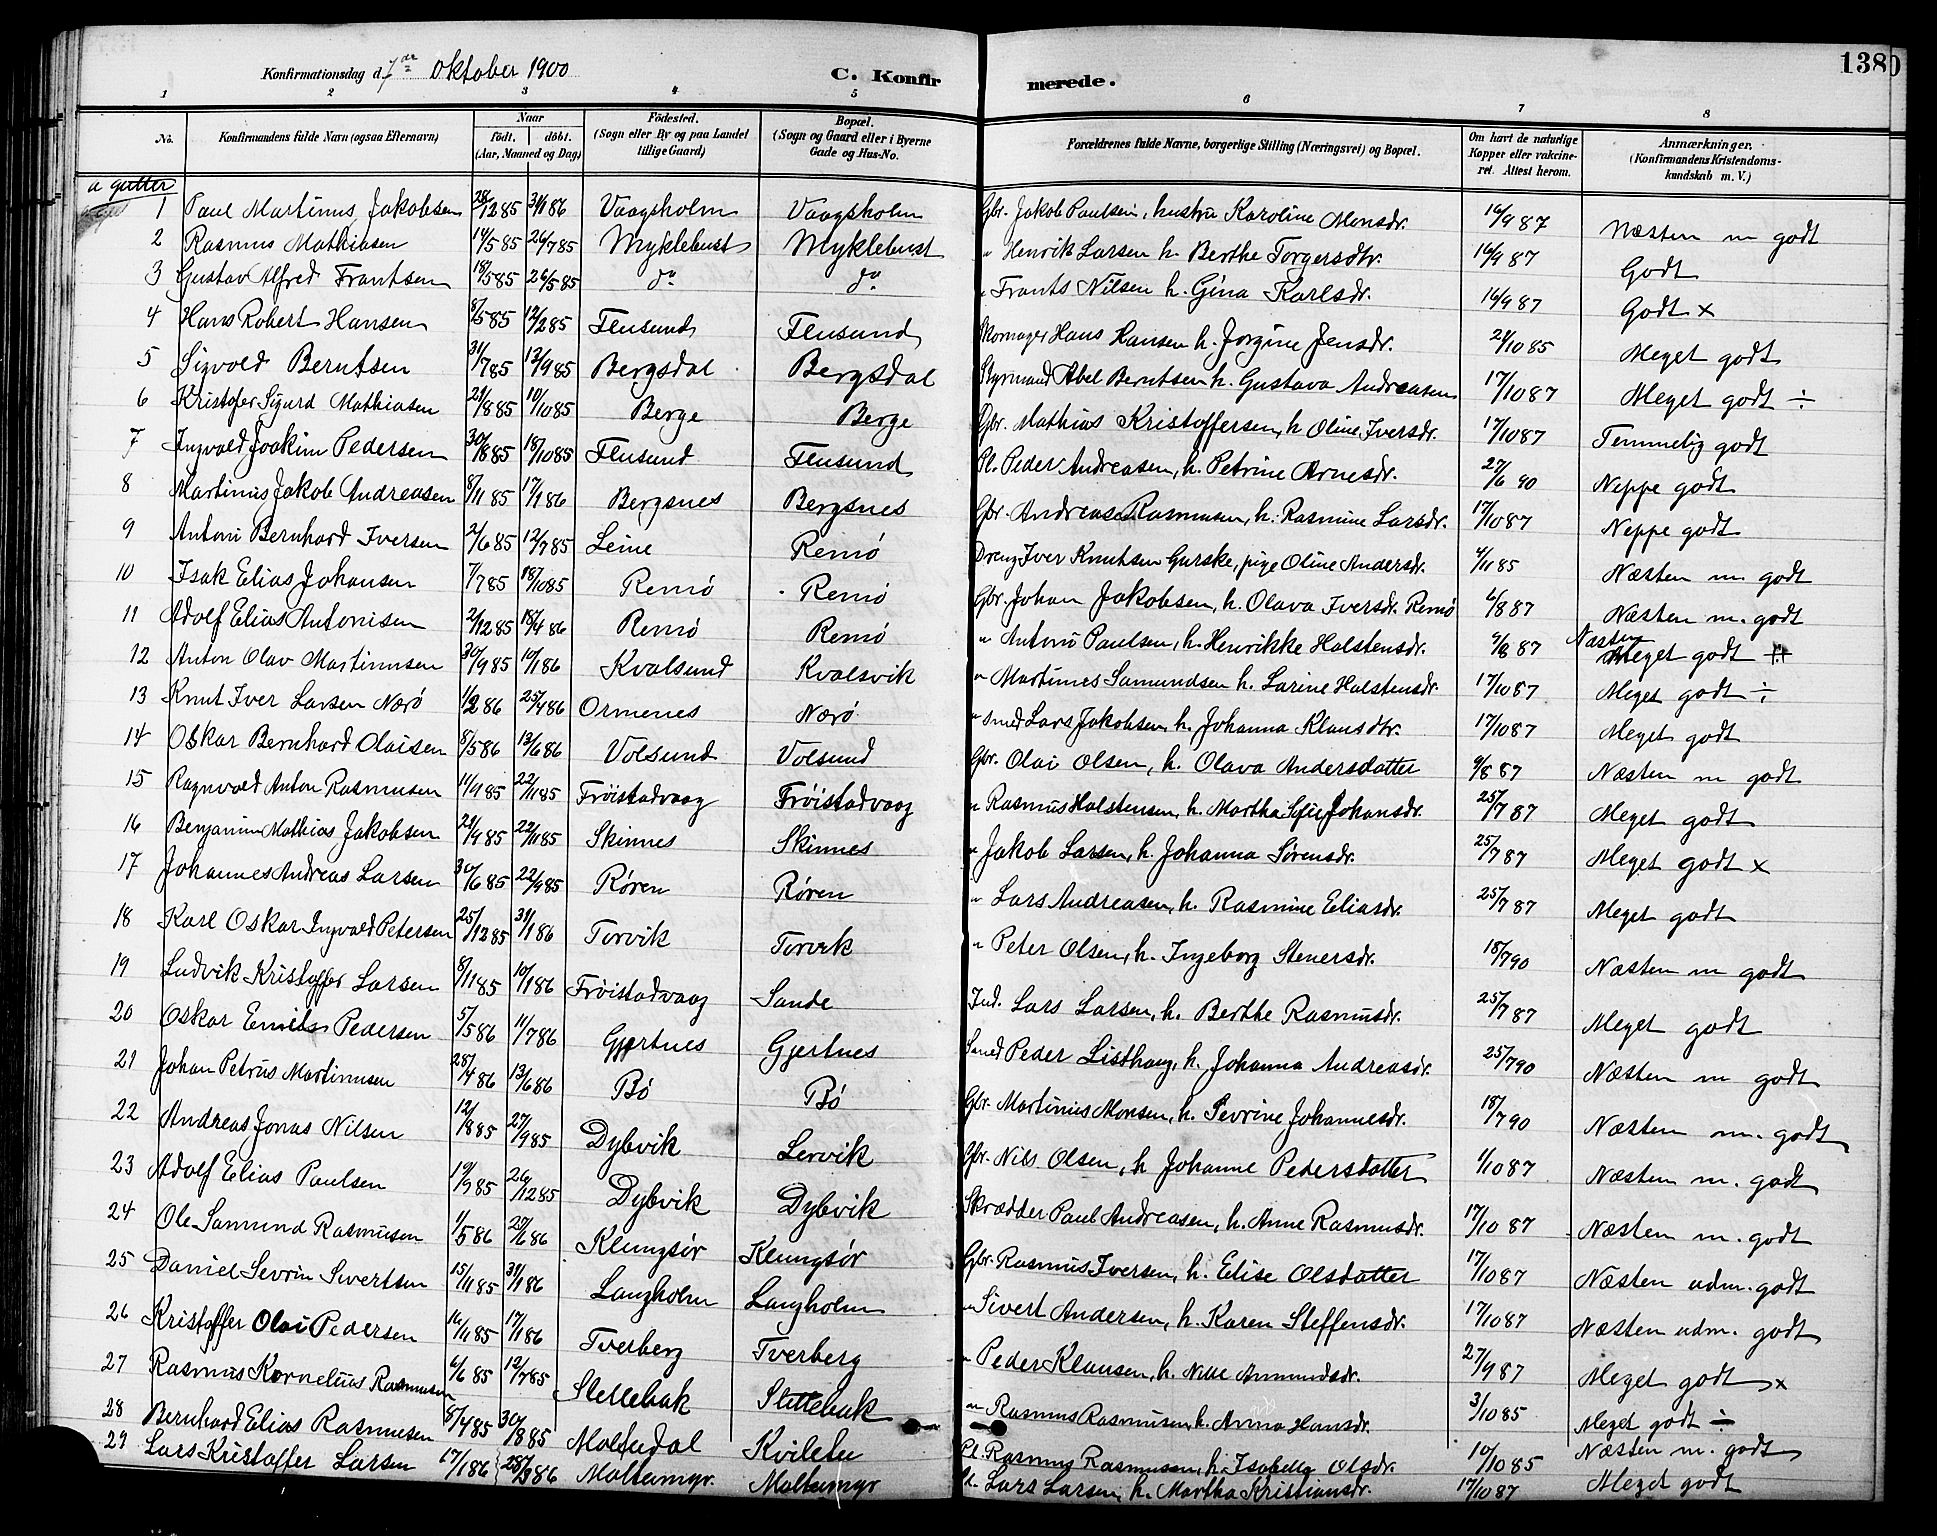 138
Konfirmationsdag d. 7de Oktober 1900 C. Konfirmerede.
1 2 3 4 5 6 7 8
No. Konfirmandens fulde Navn (ogsaa Efternavn) Naar født. døbt. (Aar, Maaned og Dag) Fødested. (Sogn eller By og paa Landet tillige Gaard) Bopæl. (Sogn og Gaard eller i Byerne Gade og Hus-No. Forældrenes fulde Navne, borgerlige Stilling (Næringsvei) og Bopæl. Om havt de naturlige Kopper eller vakcineret. Attest herom. Anmærkninger. (Konfirmandens Kristendomskundskab m. V.)
a gutter
1 Paul Martinus Jakobsen 28/12 85 31/1 86 Vaagsholm Vaagsholm Gbr. Jakob Paulsen, hustru Karoline Monsdr. 16/9 87 Næsten m godt
2 Rasmus Mathiasen 14/5 85 26/7 85 Myklebust Myklebust " Henrik Larsen h. Berthe Torgersdtr. 16/9 87 Godt
3 Gustav Alfred Frantsen 18/5 85 26/5 85 do do " Frants Nilsen h. Gina Karlsdr. 16/9 87 Godt x
4 Hans Robert Hansen 8/5 85 12/2 85 Flusund Flusund Skomager Hans Hansen h. Jorgine Jensdr. 24/10 85 Meget godt
5 Sigvold Berntsen 31/7 85 13/9 85 Bergsdal Bergsdal Styrmand Abel Berntsen h. Gustava Andreasen 17/10 87 Meget godt ÷
6 Kristofer Sigurd Mathiasen 21/8 85 10/10 85 Berge Berge Gbr. Mathias Kristoffersen, h Oline Iversdr. 17/10 87 Temmelig godt
7 Ingvald Joakim Pedersen 30/8 85 18/10 85 Flusund Flusund Pl. Peder Andreasen, h. Petrine Arnesdr. 27/6 90 Neppe godt
8 Martinus Jakob Andreasen 8/11 85 17/1 86 Bergsnes Bergsnes Gbr. Andreas Rasmusen, h. Rasmine Larsdr. 17/10 87 Neppe godt
9 Antoni Bernhard Iversen 2/6 85 12/7 85 Leine Remø Dreng Iver Knutsen Gurske, pige Oline Andersdr. 4/11 85 Næsten m. godt
10 Isak Elias Johansen 7/7 85 18/10 85 Remø Remø Gbr. Johan Jakobsen, h. Olava Iversdr. Remø 6/8 87 Næsten m. godt
11 Adolf Elias Antonisen 2/12 85 18/4 86 Remø Remø " Antoni Paulsen, h. Henrikke Halstensdr. 9/8 87 Næsten Meget godt
12 Anton Olav Martinusen 30/9 85 10/1 86 Kvalsund Kvalsvik " Martinus Samundsen h. Larine Halstensdr. 17/10 87 Meget godt ÷
13 Knut Iver Larsen Nærø 1/2 86 25/4 86 Ormenes Nærø " smed Lars Jakobsen, h. Johanna Klausdtr. 17/10 87 Meget godt
14 Oskar Bernhard Olaisen 8/5 86 13/6 86 Volsund Volsund Gbr. Olai Olsen, h. Olava Andersdatter 9/8 87 Næsten m godt
15 Ragnvald Anton Rasmusen 14/9 85 22/11 85 Frøistadvaag Frøistadvaag " Rasmus Halstensen, h. Martha Sofie Johansdr. 25/7 87 Meget godt
16 Benjamin Mathias Jakobsen 24/9 85 22/11 85 Skinnes Skinnes " Jakob Larsen, h. Johanna Sørensdr. 25/7 87 Meget godt x
17 Johannes Andreas Larsen 30/6 85 22/9 85 Røren Røren " Lars Andreasen, h. Rasmine Eliasdr. 25/7 87 Meget godt
18 Karl Oskar Ingvald Petersen 25/12 85 31/1 86 Torvik Torvik " Peter Olsen, h. Ingeborg Stenersdr. 18/7 90 Næsten m godt
19 Ludvik Kristoffer Larsen 8/11 85 10/1 86 Frøistadvaag Sande Ind. Lars Larsen, h. Berthe Rasmusdr. 25/7 87 Meget godt
20 Oskar Emil Pedersen 5/5 86 11/7 86 Gjertnes Gjertnes Smed Peder Listhaug, h. Johanna Andreasdr. 25/7 90 Næsten m godt
21 Johan Petrus Martinusen 28/4 86 13/6 86 Bø Bø Gbr. Martinus Monsen, h. Sevrine Johannesdr. 18/7 90 Næsten m. godt
22 Andreas Jonas Nilsen 12/8 85 27/9 85 Dybvik Lervik Gbr. Nils Olsen, h Johanne Pedersdatter 1/10 87 Næsten m. godt
23 Adolf Elias Paulsen 19/9 85 26/12 85 Dybvik Dybvik Skrædder Paul Andreasen, h. Anne Rasmusdr. 17/10 87 Næsten m. godt
24 Ole Samund Rasmusen 1/5 86 25/6 86 Klungsør Klungsør Gbr. Rasmus Iversen, h. Elise Olsdatter 17/10 87 Næsten udm. godt
25 Daniel Sevrin Sivertsen 15/11 85 31/1 86 Langholm Langholm " Sivert Andersen, h. Karen Steffensdr. 17/10 87 Næsten udm. godt
26 Kristoffer Olai Pedersen 16/11 85 17/1 86 Tverberg Tverberg " Peder Klausen, h. Nille Amundsdr. 27/9 87 Meget godt x
27 Rasmus Kornelius Rasmusen 6/6 85 12/7 85 Stellebak Slettebak " Rasmus Rasmusen, h. Anna Hansdr. 3/10 85 Meget godt ÷
28 Bernhard Elias Rasmusen 8/4 85 30/8 85 Moltudal Kvilebu Pl. Rasmus Rasmusen, h. Isabella Olsdr. 10/10 85 Næsten m. godt
29 Lars Kristoffer Larsen 17/1 86 28/3 86 Moltumyr. Moltumyr Pl. Lars Larsen, h. Martha Kristiansdr. 17/10 87 Meget godt